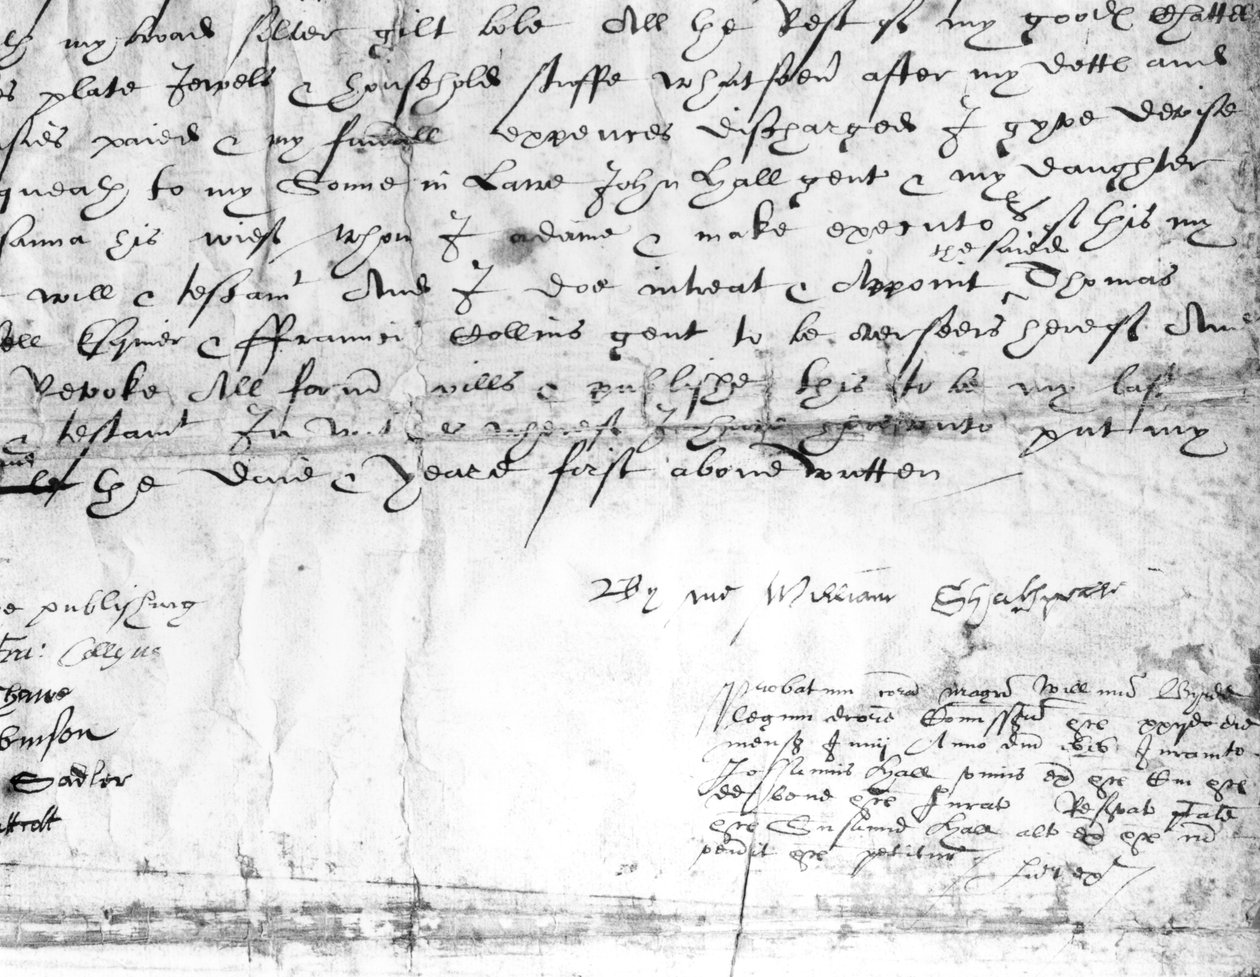 my broad silver gilt bole All the Rest of my goodℓ Chattell
plate Jewels & household stuffe whatsoever after my dettℓ and
paied & my funerall expences discharged I gyve devise
to my Sonne in Lawe John Hall gent & my daughter
his wief whom I ordaine & make executoʳˢ of this my
the saied
will & testamᵗ And I doe intreat & Appoint ‸ Thomas
Esquier & ffrauncis Collins gent to be overseers hereof And
Revoke All former wills & publishe this to be my last
& testamᵗ In witnes whereof I have hereunto put my
the daie & Yeare first above written
By me William Shakspeare
publishing
Fra: Collyns
Sadler
Probatum coram Magro Willimo Byrde
legum doctore Comissar etc xxijdo die
mensis Junij Anno dni 1616 Juramto
Johannis Hall unius ex etc Cui etc
de bene etc Jurat Resvat ptate
etc Susanne Hall alt ex etc cum
venerit etc petitur